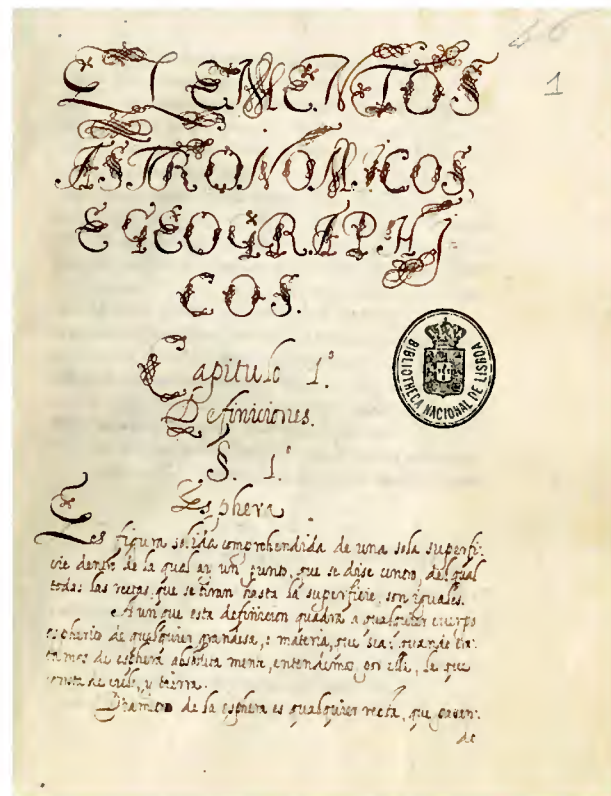 56
1
ELEMENTOS
ASTRONOMICOS,
E GEOGRAPHI-
COS.
Capitulo 1.º
Definiciones.
§. 1.º
Esphera
Es figura solida comprehendida de una sola superfi-
cie dentro de la qual ay un punto, que se dise centro, del qual
todas las rectas que se tiran hasta la superficie, son iguales.
Aunque esta definicion quadra a qualquier cuerpo
espherico de qualquier grandesa, o materia, que sea; quando tra-
tamos de esphera absoluta mente, entendemos por ella, la que
consta de cielo, y tierra.
Diametro de la esphera es qualquier recta, que
de
BIBLIOTHECA NACIONAL DE LISBOA